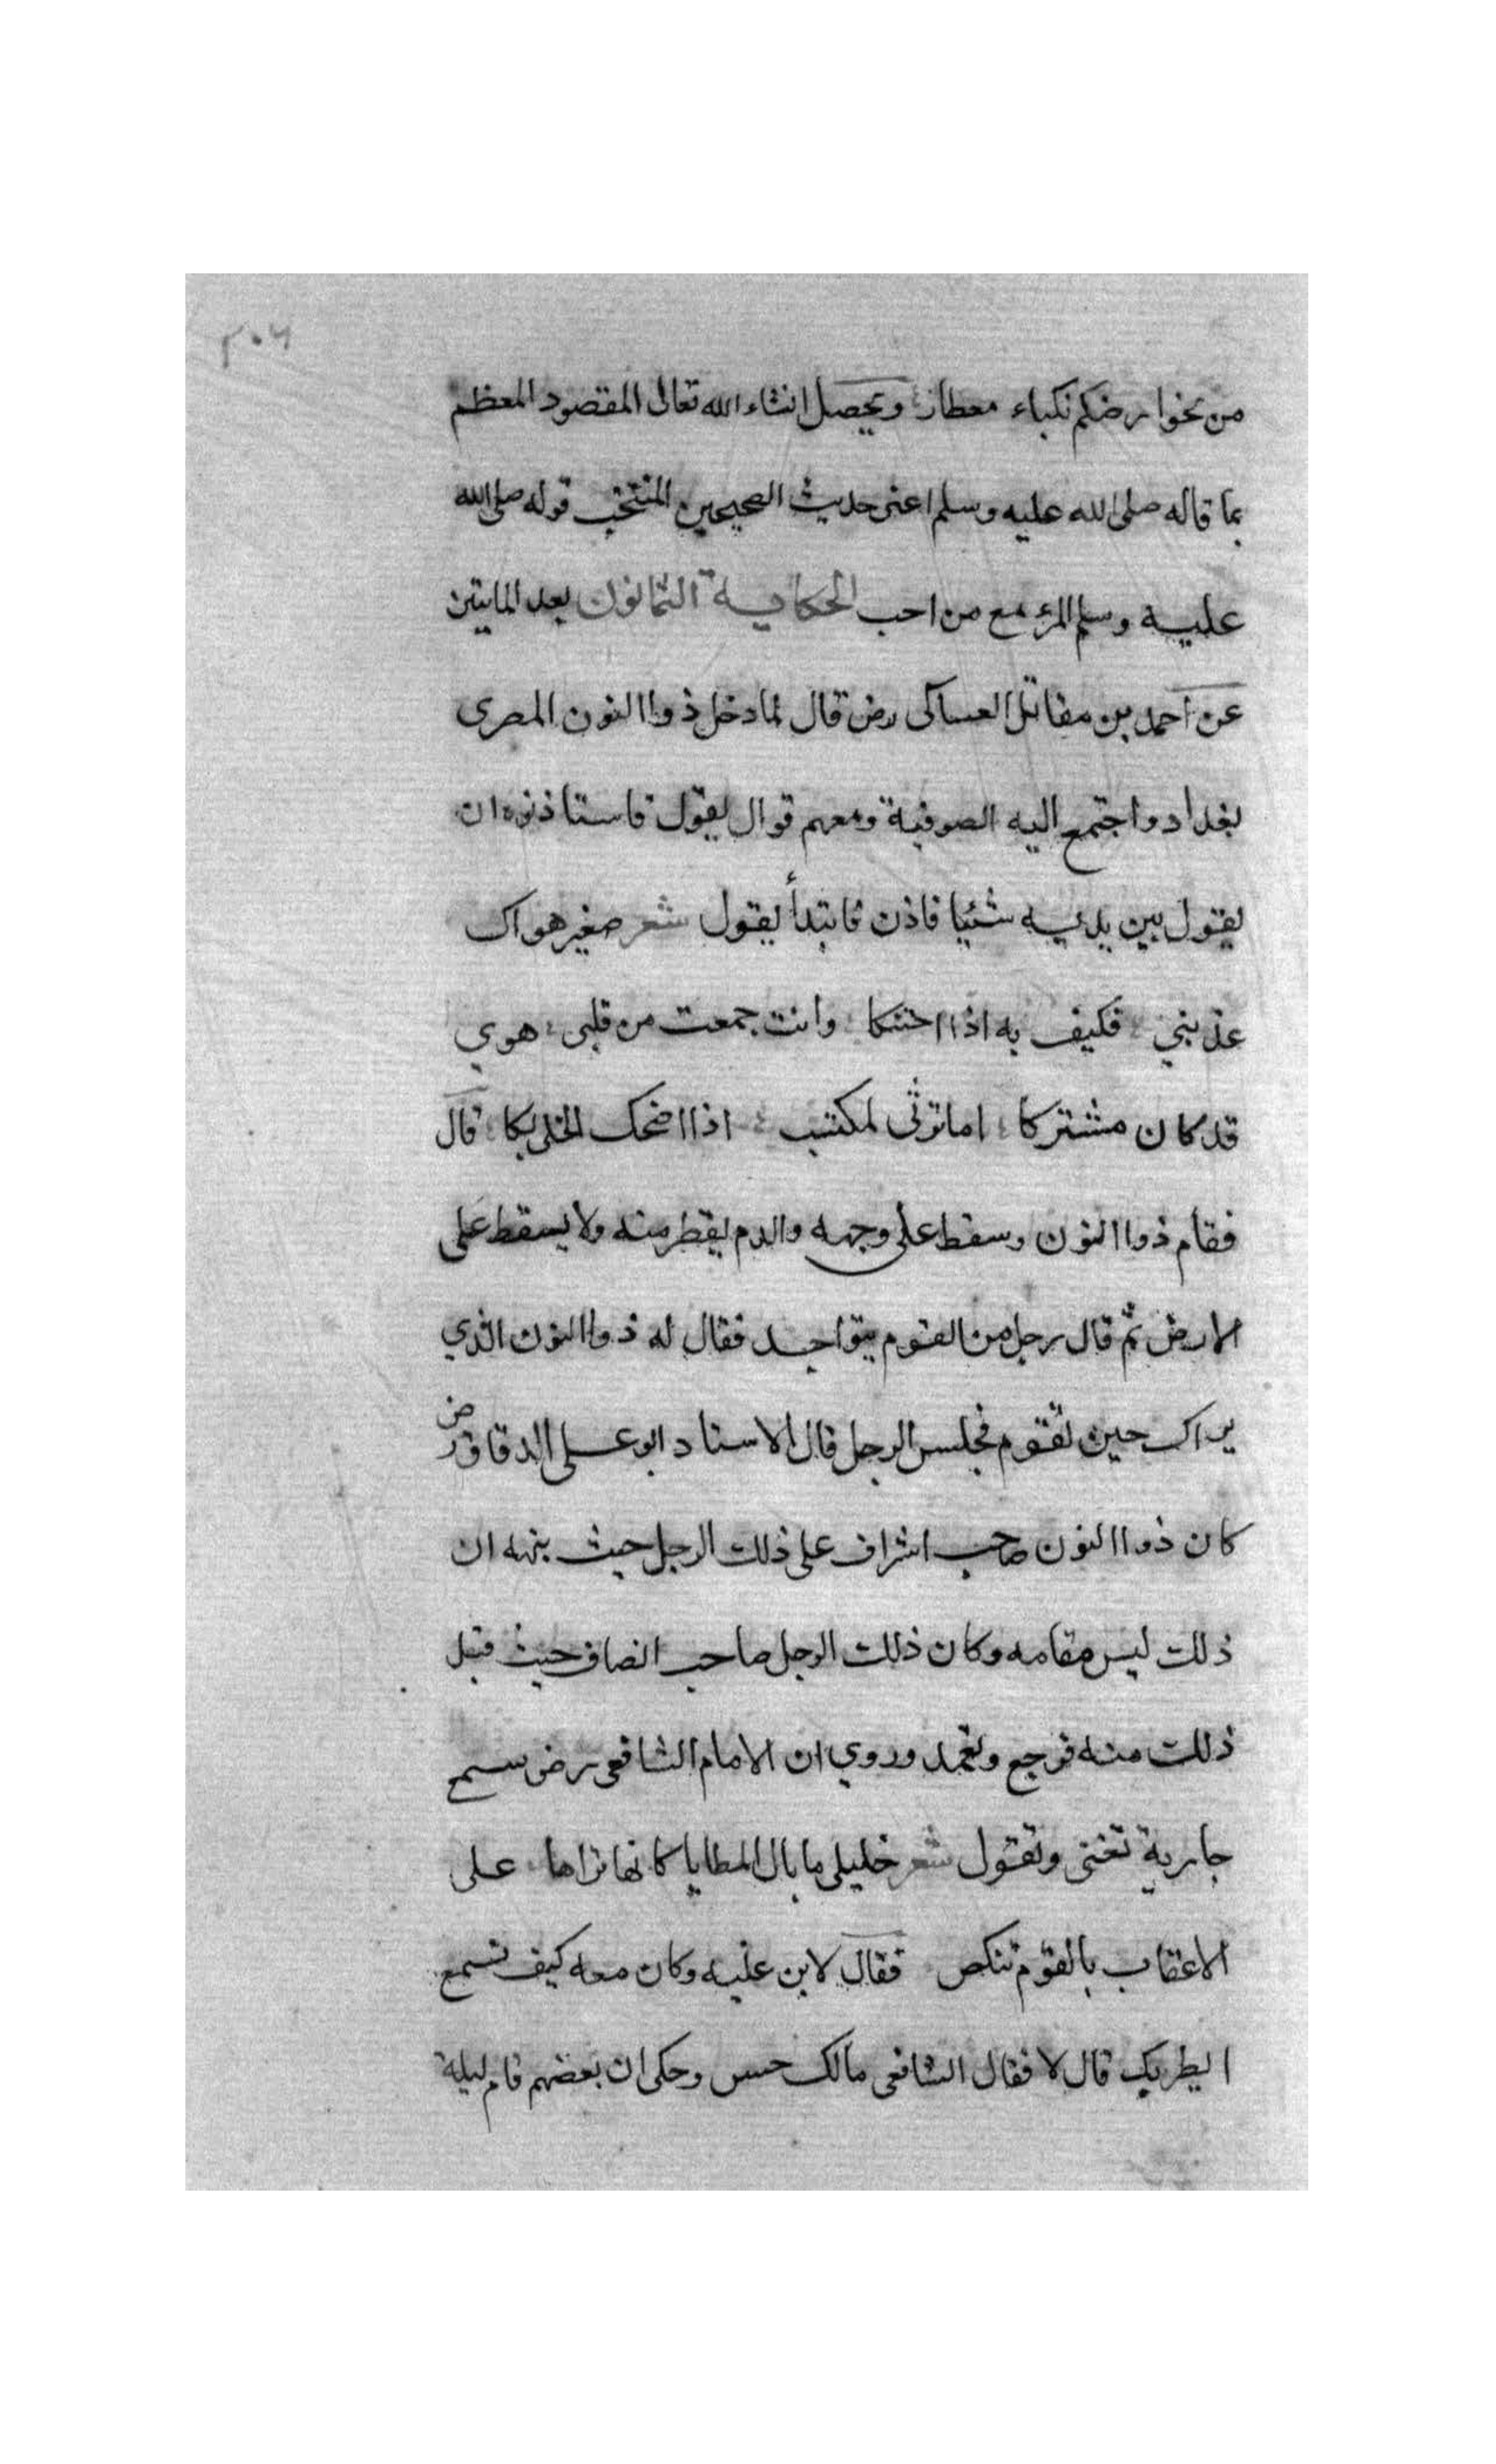 ٢٠٤
من نحوا رضكم نكباء معطار ويحصل انشاء الله تعالى المقصود المعظم
بما قاله صلى الله عليه وسلم اعنى حديث الصحيحين المنتخب قوله صلى الله
عليه وسلم المرء مع من احب الحكاية الثمانون بعد المايتين
عن احمد بن مقاتل العساكى رض قال لما دخل ذوا النون المصرى
بغداد واجتمع اليه الصوفية ومعهم قوال يقول فاستاذنوه ان
يقول بين يديه شئيا فاذن فابتدأ يقول شعر صغير هواك
عذبني فكيف به اذا احتنكا وانت جمعت من قلبى هوي
قد كان مشتركا اما ترثى لمكتئب اذا اضحك الخلى بكا قال
فقام ذوا النون وسقط على وجهه والدم يقطر منه ولا يسقط على
الارض ثم قال رجل من القوم يتواجد فقال له ذوا النون الذي
يراك حين تقوم فجلس الرجل قال الاستاد ابو على الدقاق رض
كان ذوا النون صاحب اشراف على ذلك الرجل حيث بنهه ان
ذلك ليس مقامه وكان ذلك الرجل صاحب انصاف حيث قبل
ذلك منه فرجع وقعد وروي ان الامام الشافعى رض سمع
جارية تغنى وتقول شعر خليلى ما بال المطايا كانها نراها على
الاعقاب بالقوم تنكص فقال لابن عليه وكان معه كيف تسمع
ايطربك قال لا فقال الشافعى مالك حس وحكى ان بعضهم قام ليلة